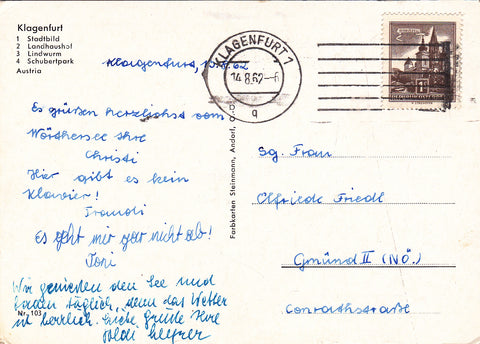 Klagenfurt
1 Stadtbild
2 Landhaushof
3 Lindwurm
4 Schubertpark
Austria
Klagenfurt, 13.8.62
KLAGENFURT 1
14.8.62-6
q
Es grüßen herzlichst vom
Wörthersee Ihre
Christi
Hier gibt es kein
Klavier!
Traudi
Es geht mir gar nicht ab!
Toni
Wir genießen den See und
baden täglich, denn das Wetter
ist herrlich. Liebe Grüße Ihre
Poldi
Nr. 103
Farbkarten Steinmann, Andorf, O.
Sg. Frau
Elfriede Friedl
Gmünd II (NÖ.)
Conrathstraße